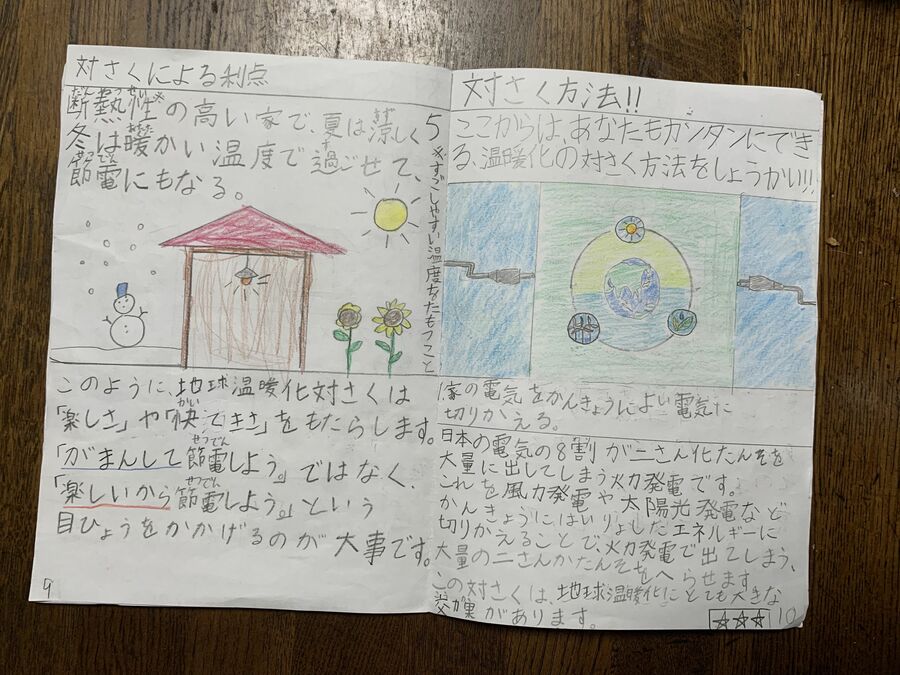 対さくによる利点
断熱性※の高い家で、夏は涼しく
冬は暖かい温度で過ごせて、
節電にもなる。
※すごしやすい温度をたもつこと
このように、地球温暖化対さくは
「楽しさ」や「快てきさ」をもたらします。
「がまんして節電しよう。」ではなく、
「楽しいから節電しよう。」という
目ひょうをかかげるのが大事です。
9
対さく方法!!
ここからは、あなたもカンタンにでき
る、温暖化の対さく方法をしょうかい!!
1.家の電気をかんきょうによい電気に
切りかえる。
日本の電気の8割が二さん化たんそを
大量に出してしまう火力発電です。
これを風力発電や太陽光発電など
かんきょうにはいりょしたエネルギーに
切りかえることで、火力発電で出てしまう、
大量の二さんかたんそをへらせます
この対さくは、地球温暖化にとても大きな
効果があります。
☆☆☆
10